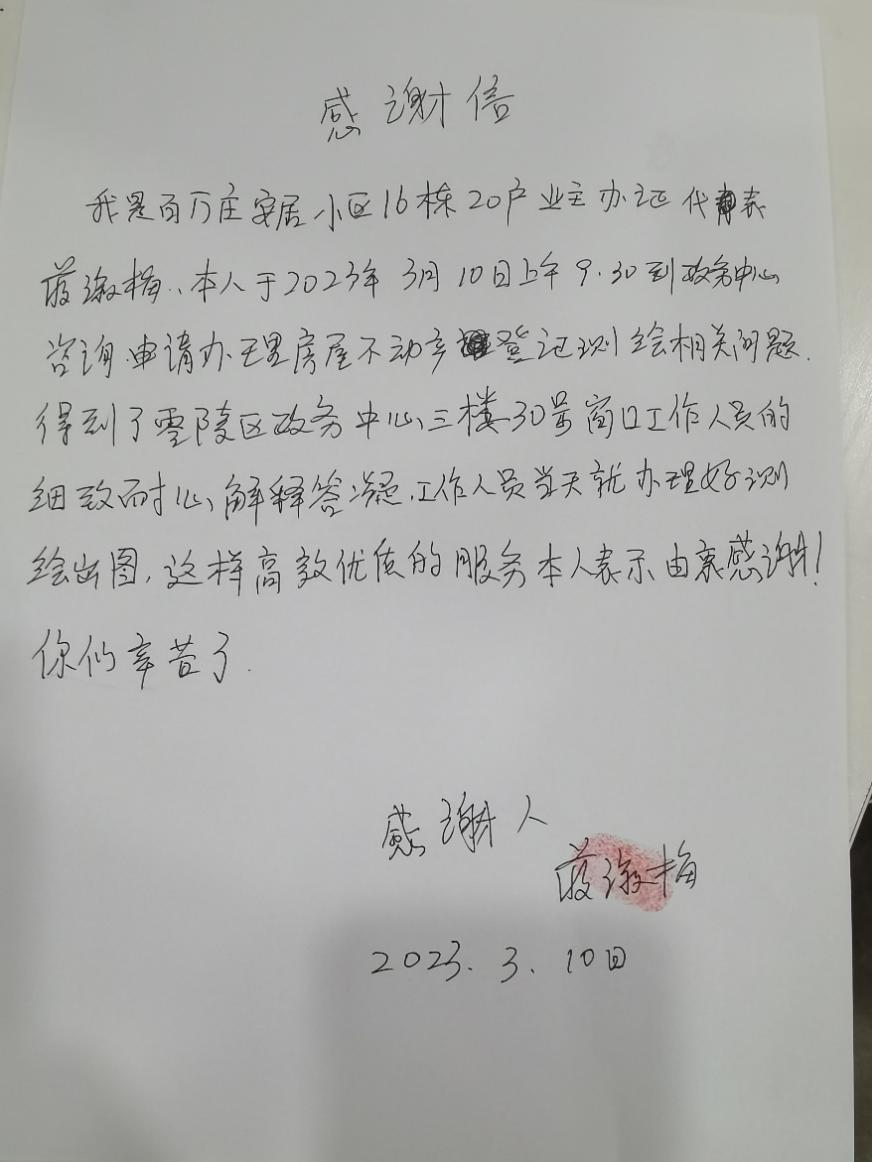 感谢信
我是百万庄安居小区16栋20户业主办证代表
蒋淑梅、本人于2023年3月10日上午9.30到政务中心
咨询.申请办理房屋不动产登记测绘相关问题.
得到了零陵区政务中心三楼30号窗口工作人员的
细致耐心解释答凝.工作人员当天就办理好测
绘出图,这样高效优质的服务本人表示由衷感谢!
你们辛苦了.
感谢人
蒋淑梅
2023.3.10日